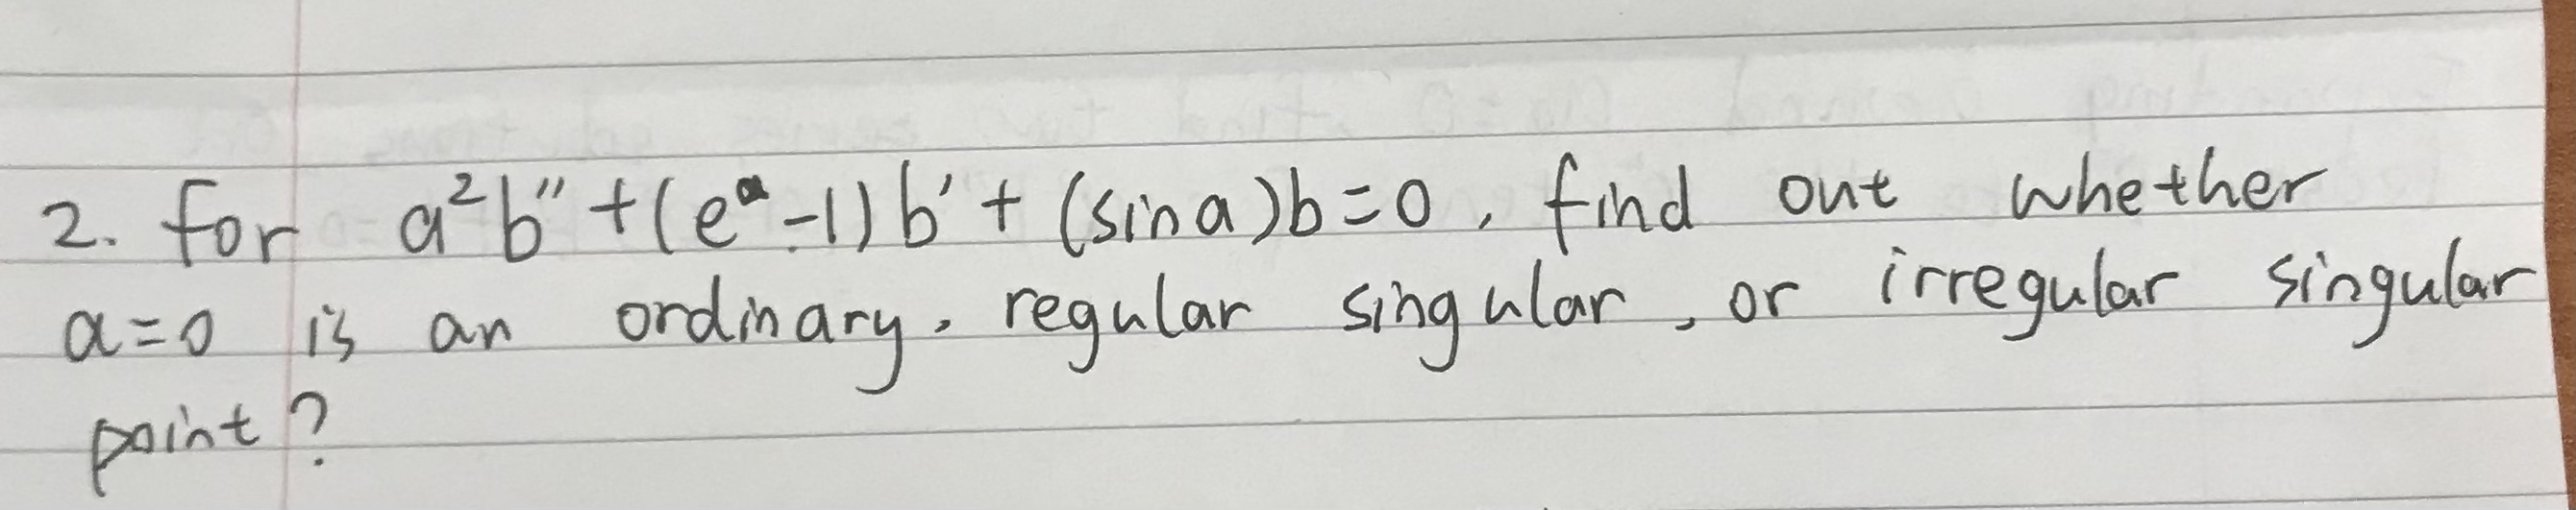 2. for a²b″ + (eᵃ - 1) b′ + (sin a) b = 0, find out whether
a = 0 is an ordinary, regular singular, or irregular singular
point?